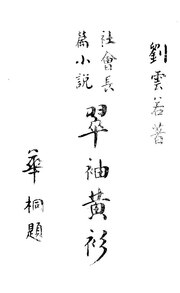 劉雲若著
社會長
篇小說
翠袖黃衫
華桐題